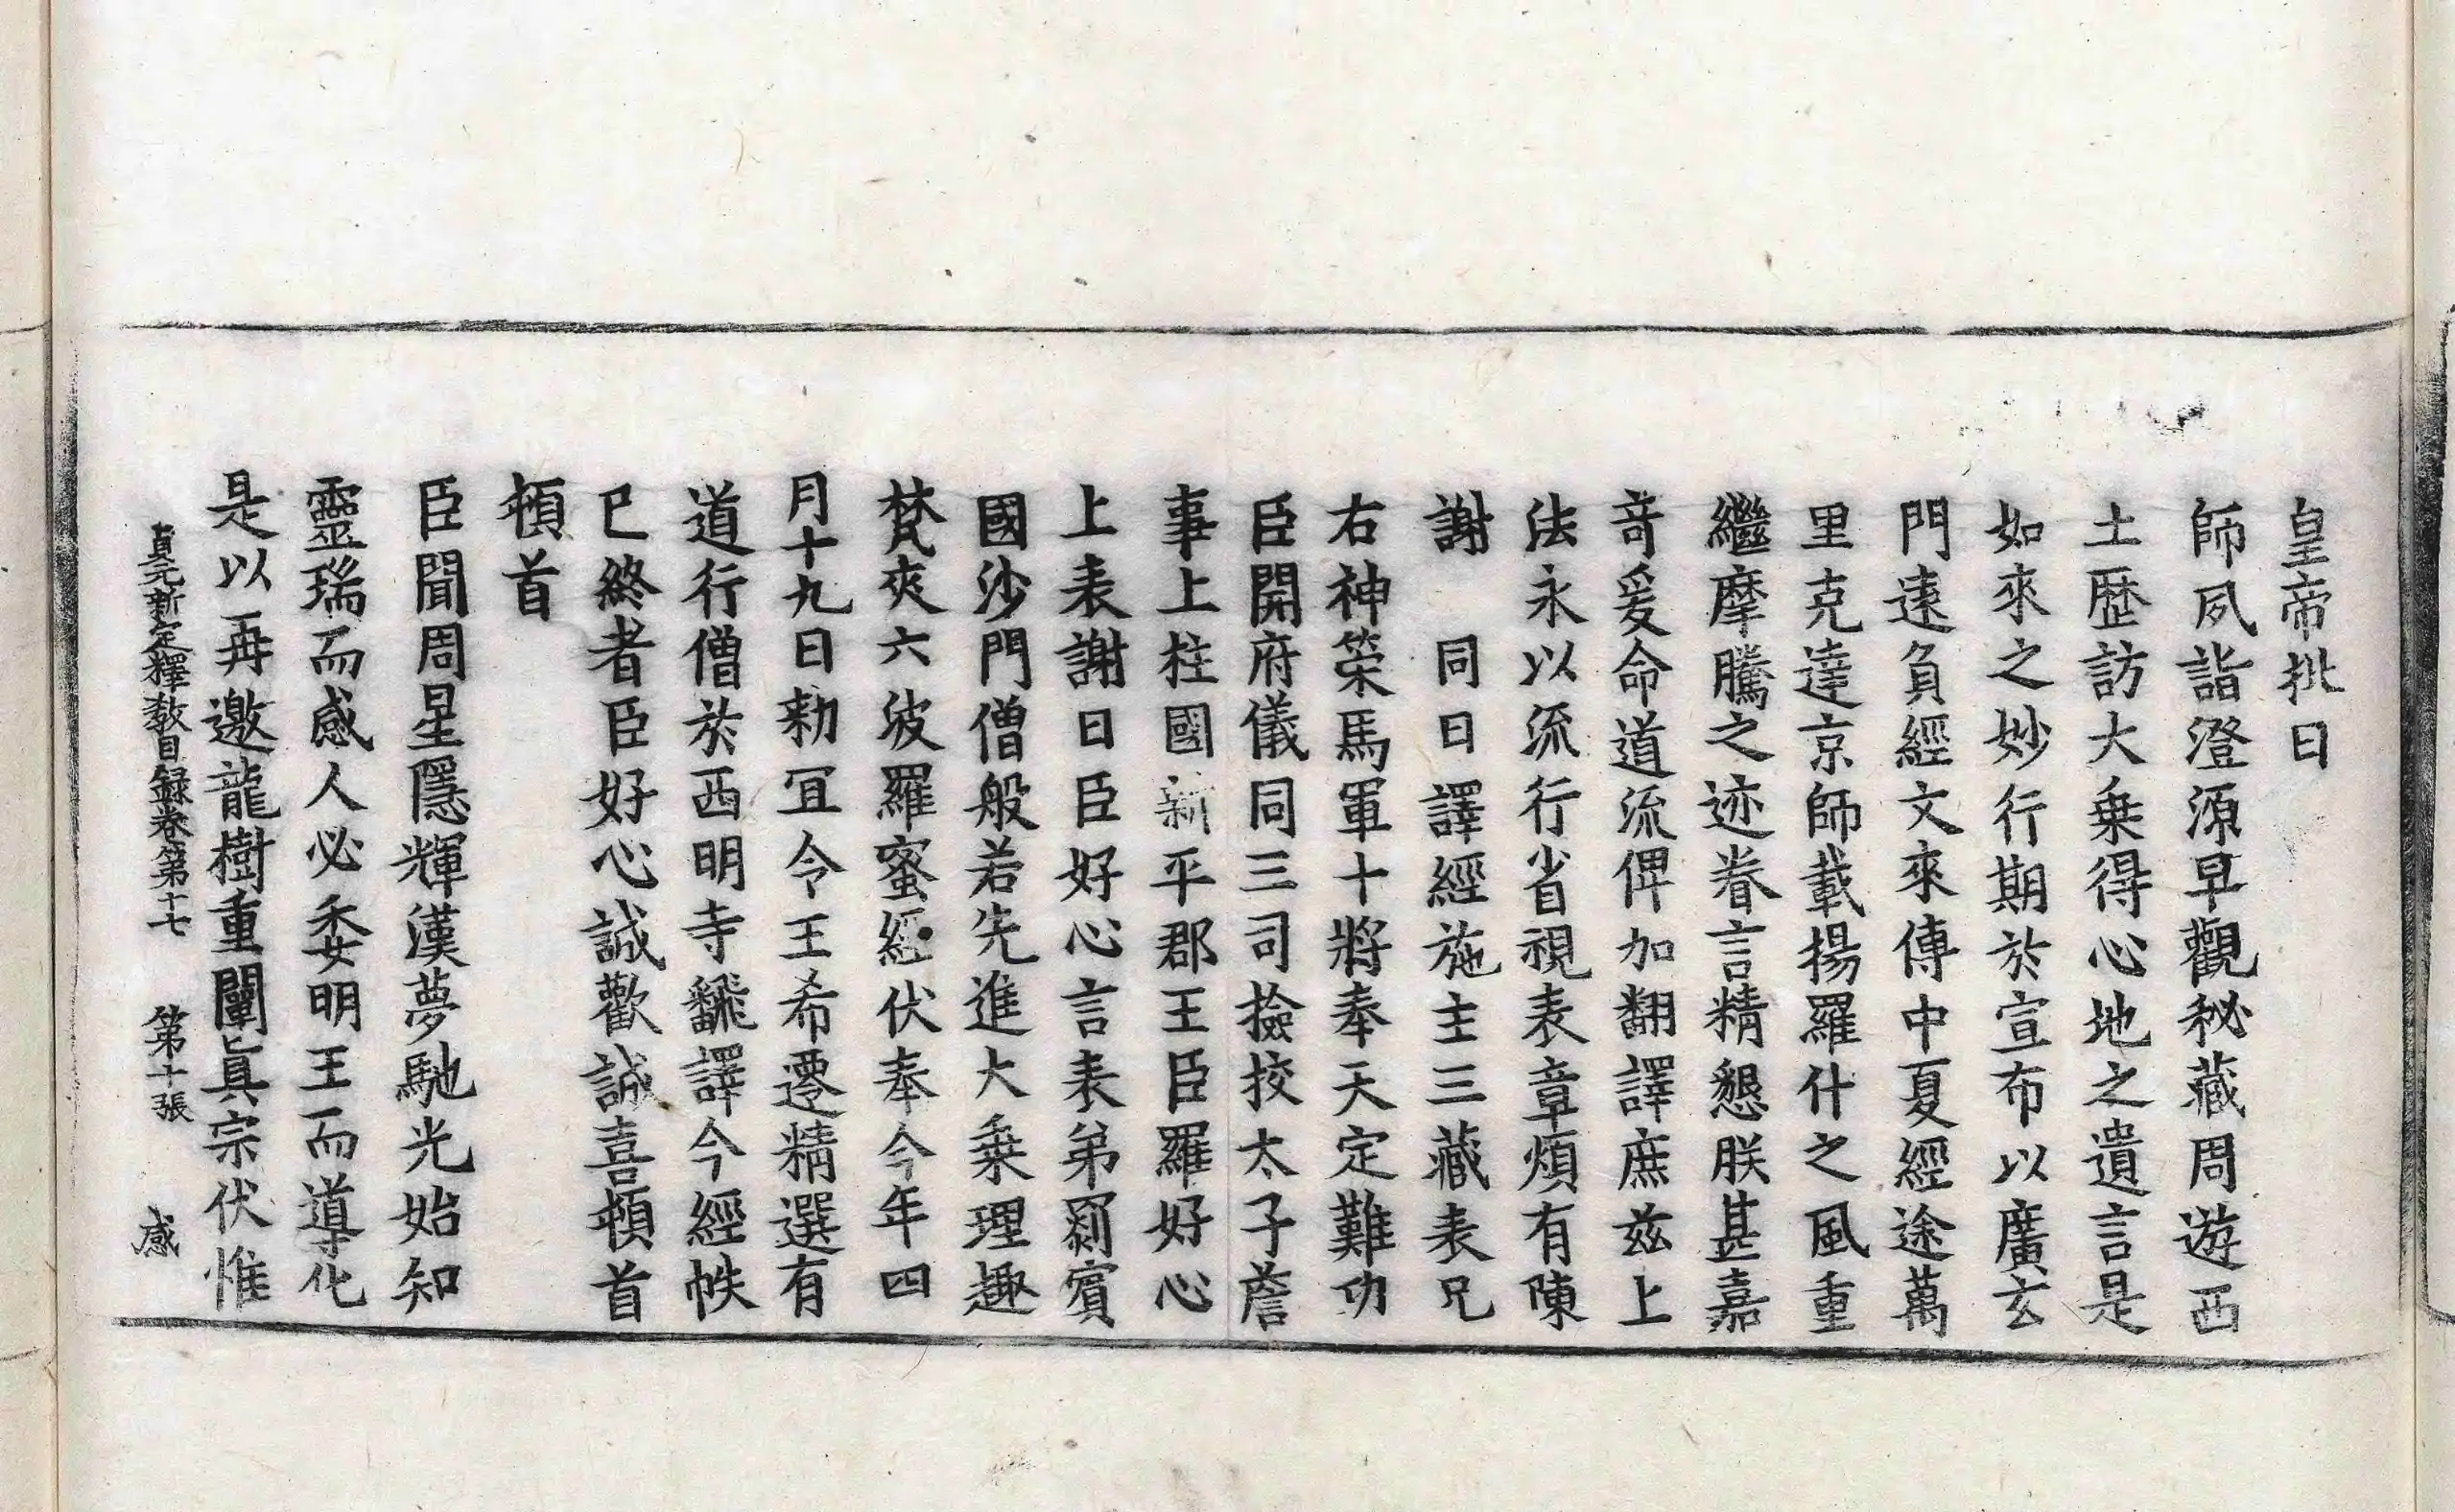 皇帝批曰
師夙詣澄源早觀秘藏周遊西
土歷訪大乗得心地之遺言是
如來之妙行期於宣布以廣玄
門遠負經文來傳中夏經途萬
里克達京師載揚羅什之風重
繼摩騰之迹眷言精懇朕甚嘉
竒爰命道流俾加翻譯庶兹上
法永以流行省視表章煩有陳
謝　同日譯經施主三藏表兄
右神策馬軍十將奉天定難功
臣開府儀同三司撿挍太子詹
事上柱國新平郡王臣羅好心
上表謝曰臣好心言表弟罽賓
國沙門僧般若先進大乗理趣
梵夾六波羅蜜經伏奉今年四
月十九日勑冝令王希遷精選有
道行僧於西明寺飜譯今經帙
已終者臣好心誠歡誠喜頓首
頓首
臣聞周星隱輝漢夢馳光始知
靈瑞而感人必委明王而導化
是以再邀龍樹重闡眞宗伏惟
貞元新定釋教目録卷第十七　第十張　感